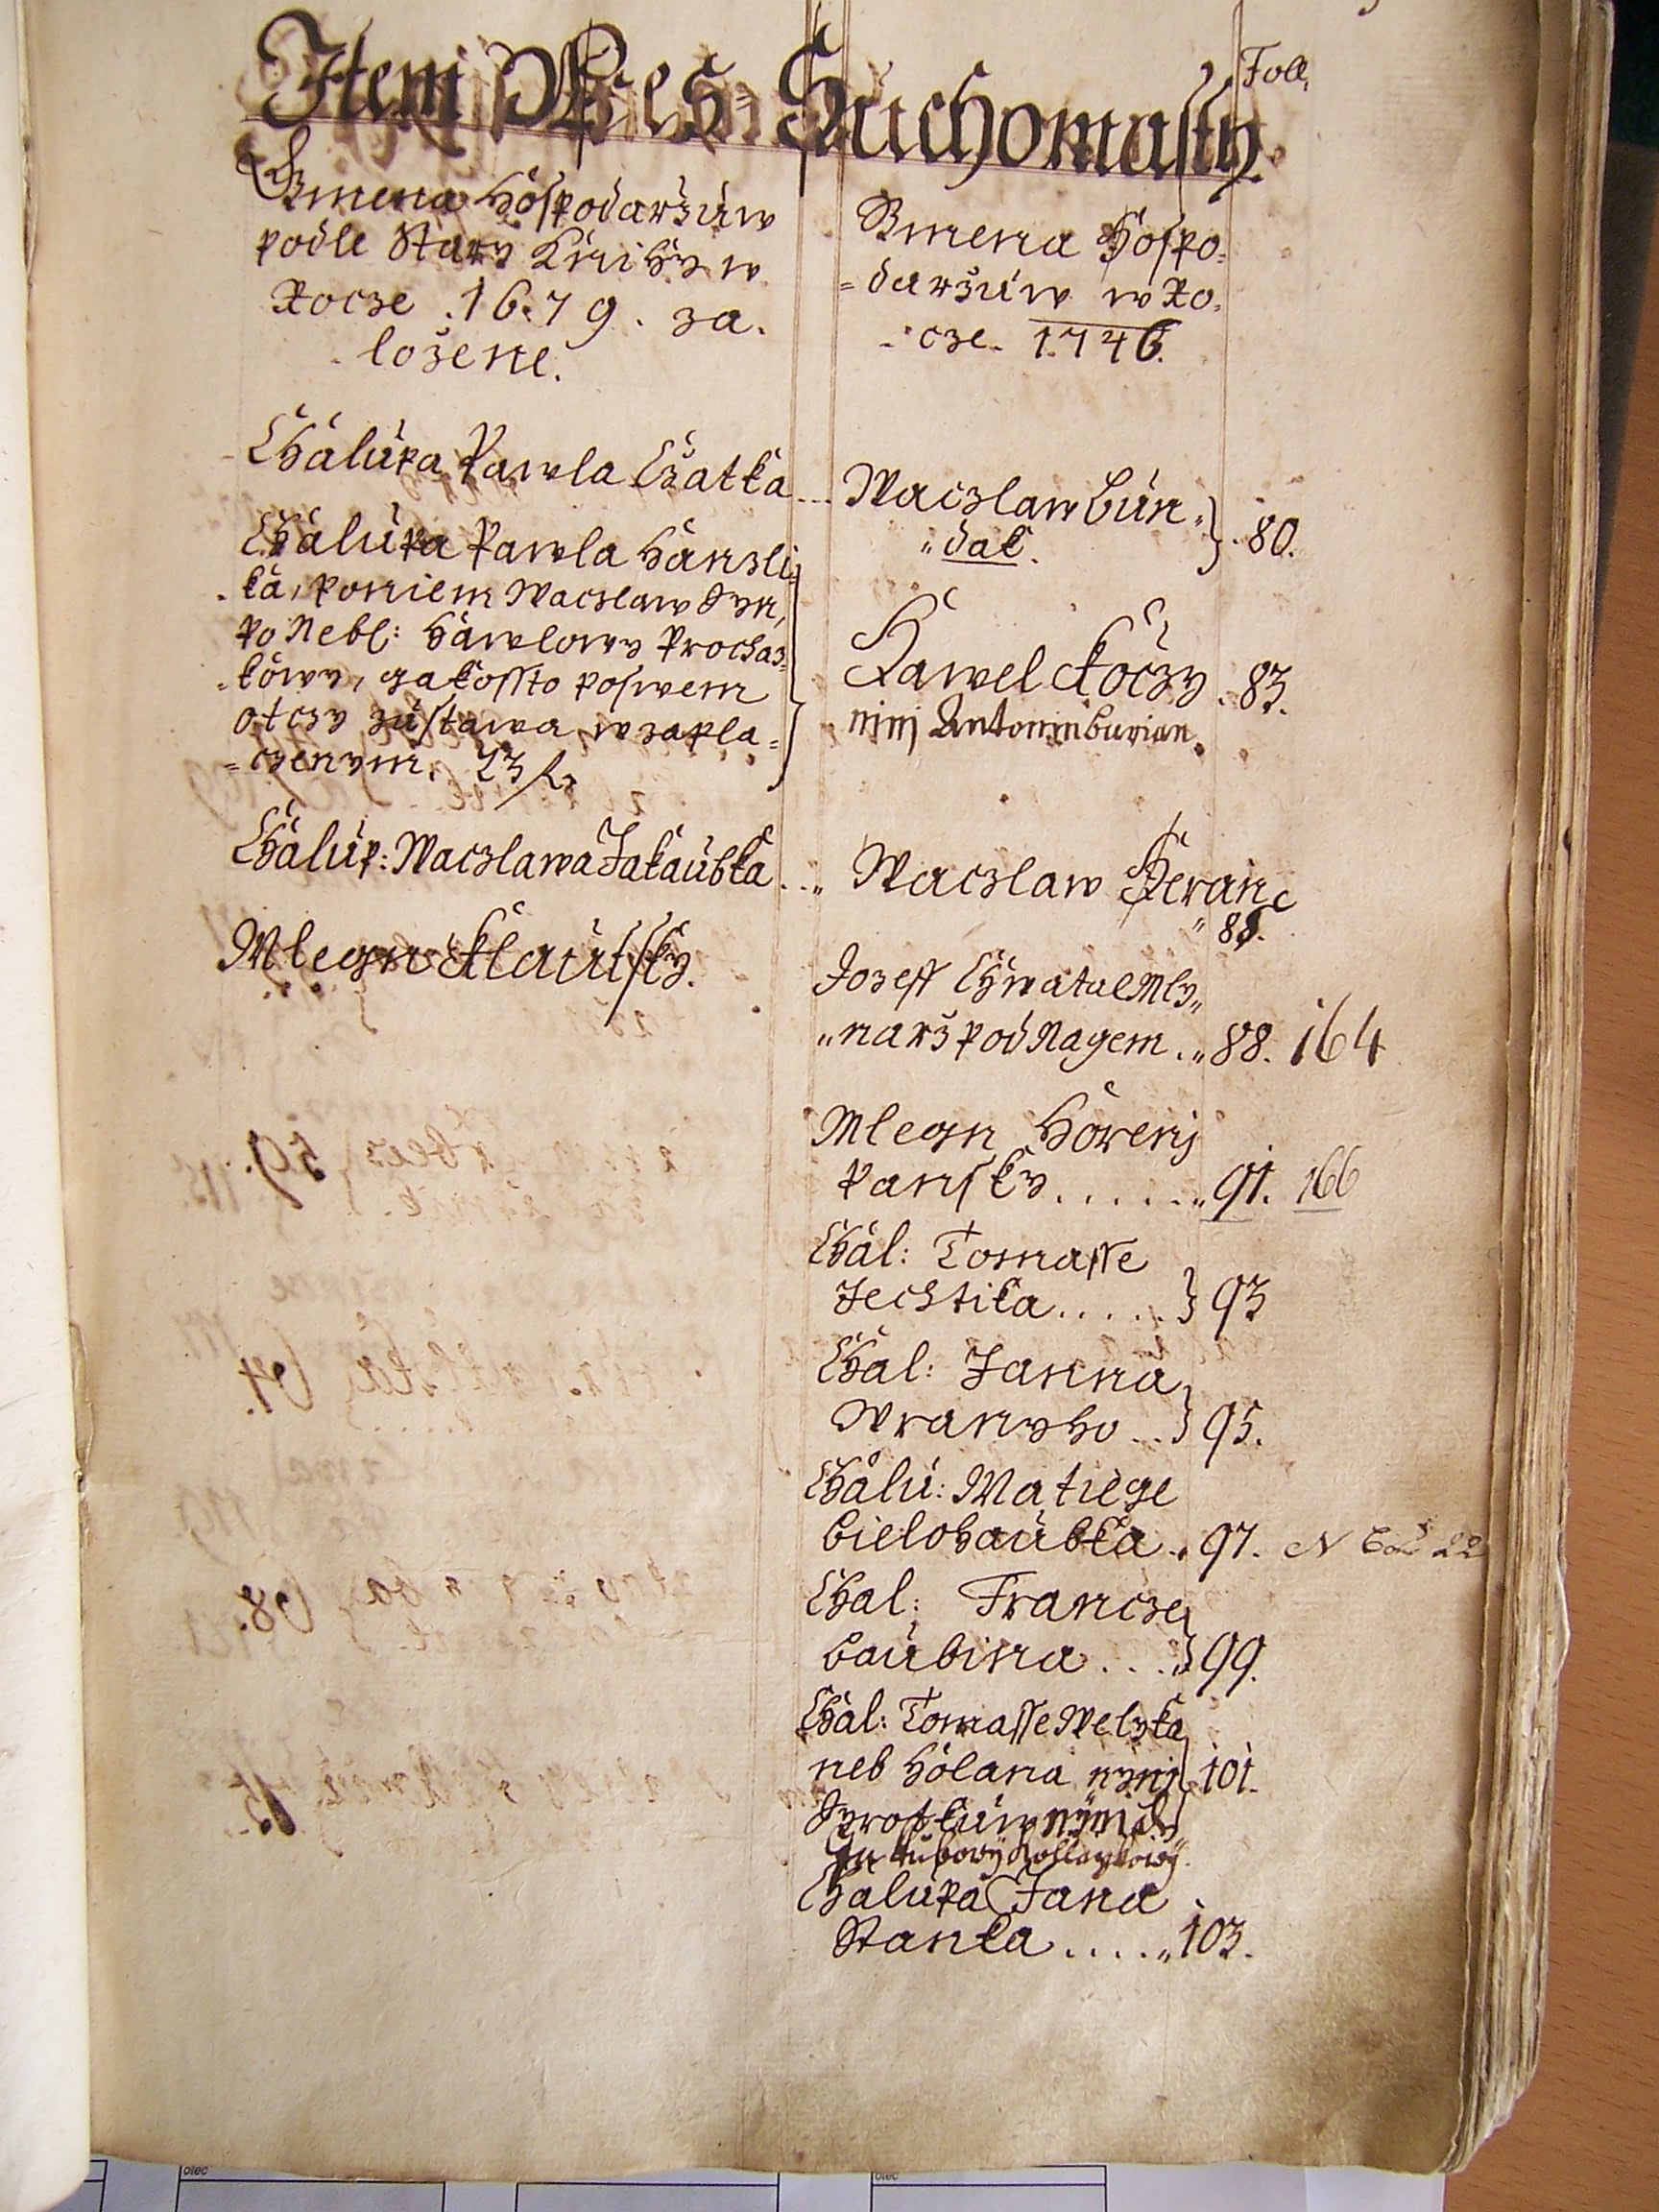 Item Wes Suchomasty.
Foll.
Gmena Hospodarzuw
podle Stary Knihy w
Rocze .1679. za-
lożene.
Gmena Hospo-
darzuw w Ro-
cze 1746.
Chalupa Pawla Czatka
Waczlaw Bun-
dal.
80.
Chalupa Pawla Hanzli-
ka, poniem Waczlaw Syn,
po Nebl: Hawlowy Prochaz-
kowy, gakossto poswem
otczy zustawa w zapla-
czenym.
Pawel Koczy
83.
ninj Antonin Burian.
Chalup: Waczlawa Jakaubka
Waczlaw Beran
88.
Mlegn Klausky.
Jozeff Chwatal Mly-
narz pod Hagem 88. 164
Mlegn Horenj
Pansky 91. 166
Chal: Tomasse
Techtika 93
Chal: Janna
Wranyho 95.
Chalu: Matiege
Bielohaubka 97.
Chal: Francze
Baubina 99.
Chal: Tomasse Welyka
neb Holana nynj 101.
Syrotkuw
Chalupa Jana
Stanka 103.
otec
otec